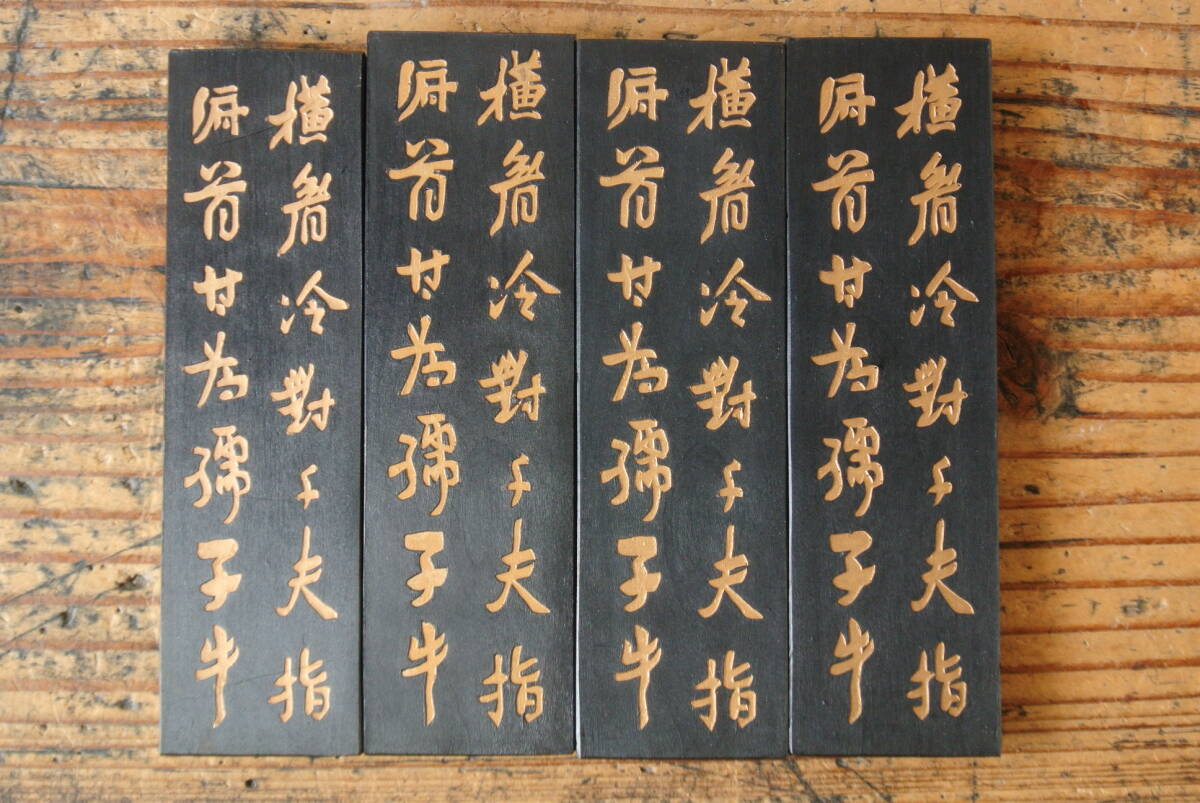 橫眉冷對千夫指
俯首甘為孺子牛
橫眉冷對千夫指
俯首甘為孺子牛
橫眉冷對千夫指
俯首甘為孺子牛
橫眉冷對千夫指
俯首甘為孺子牛